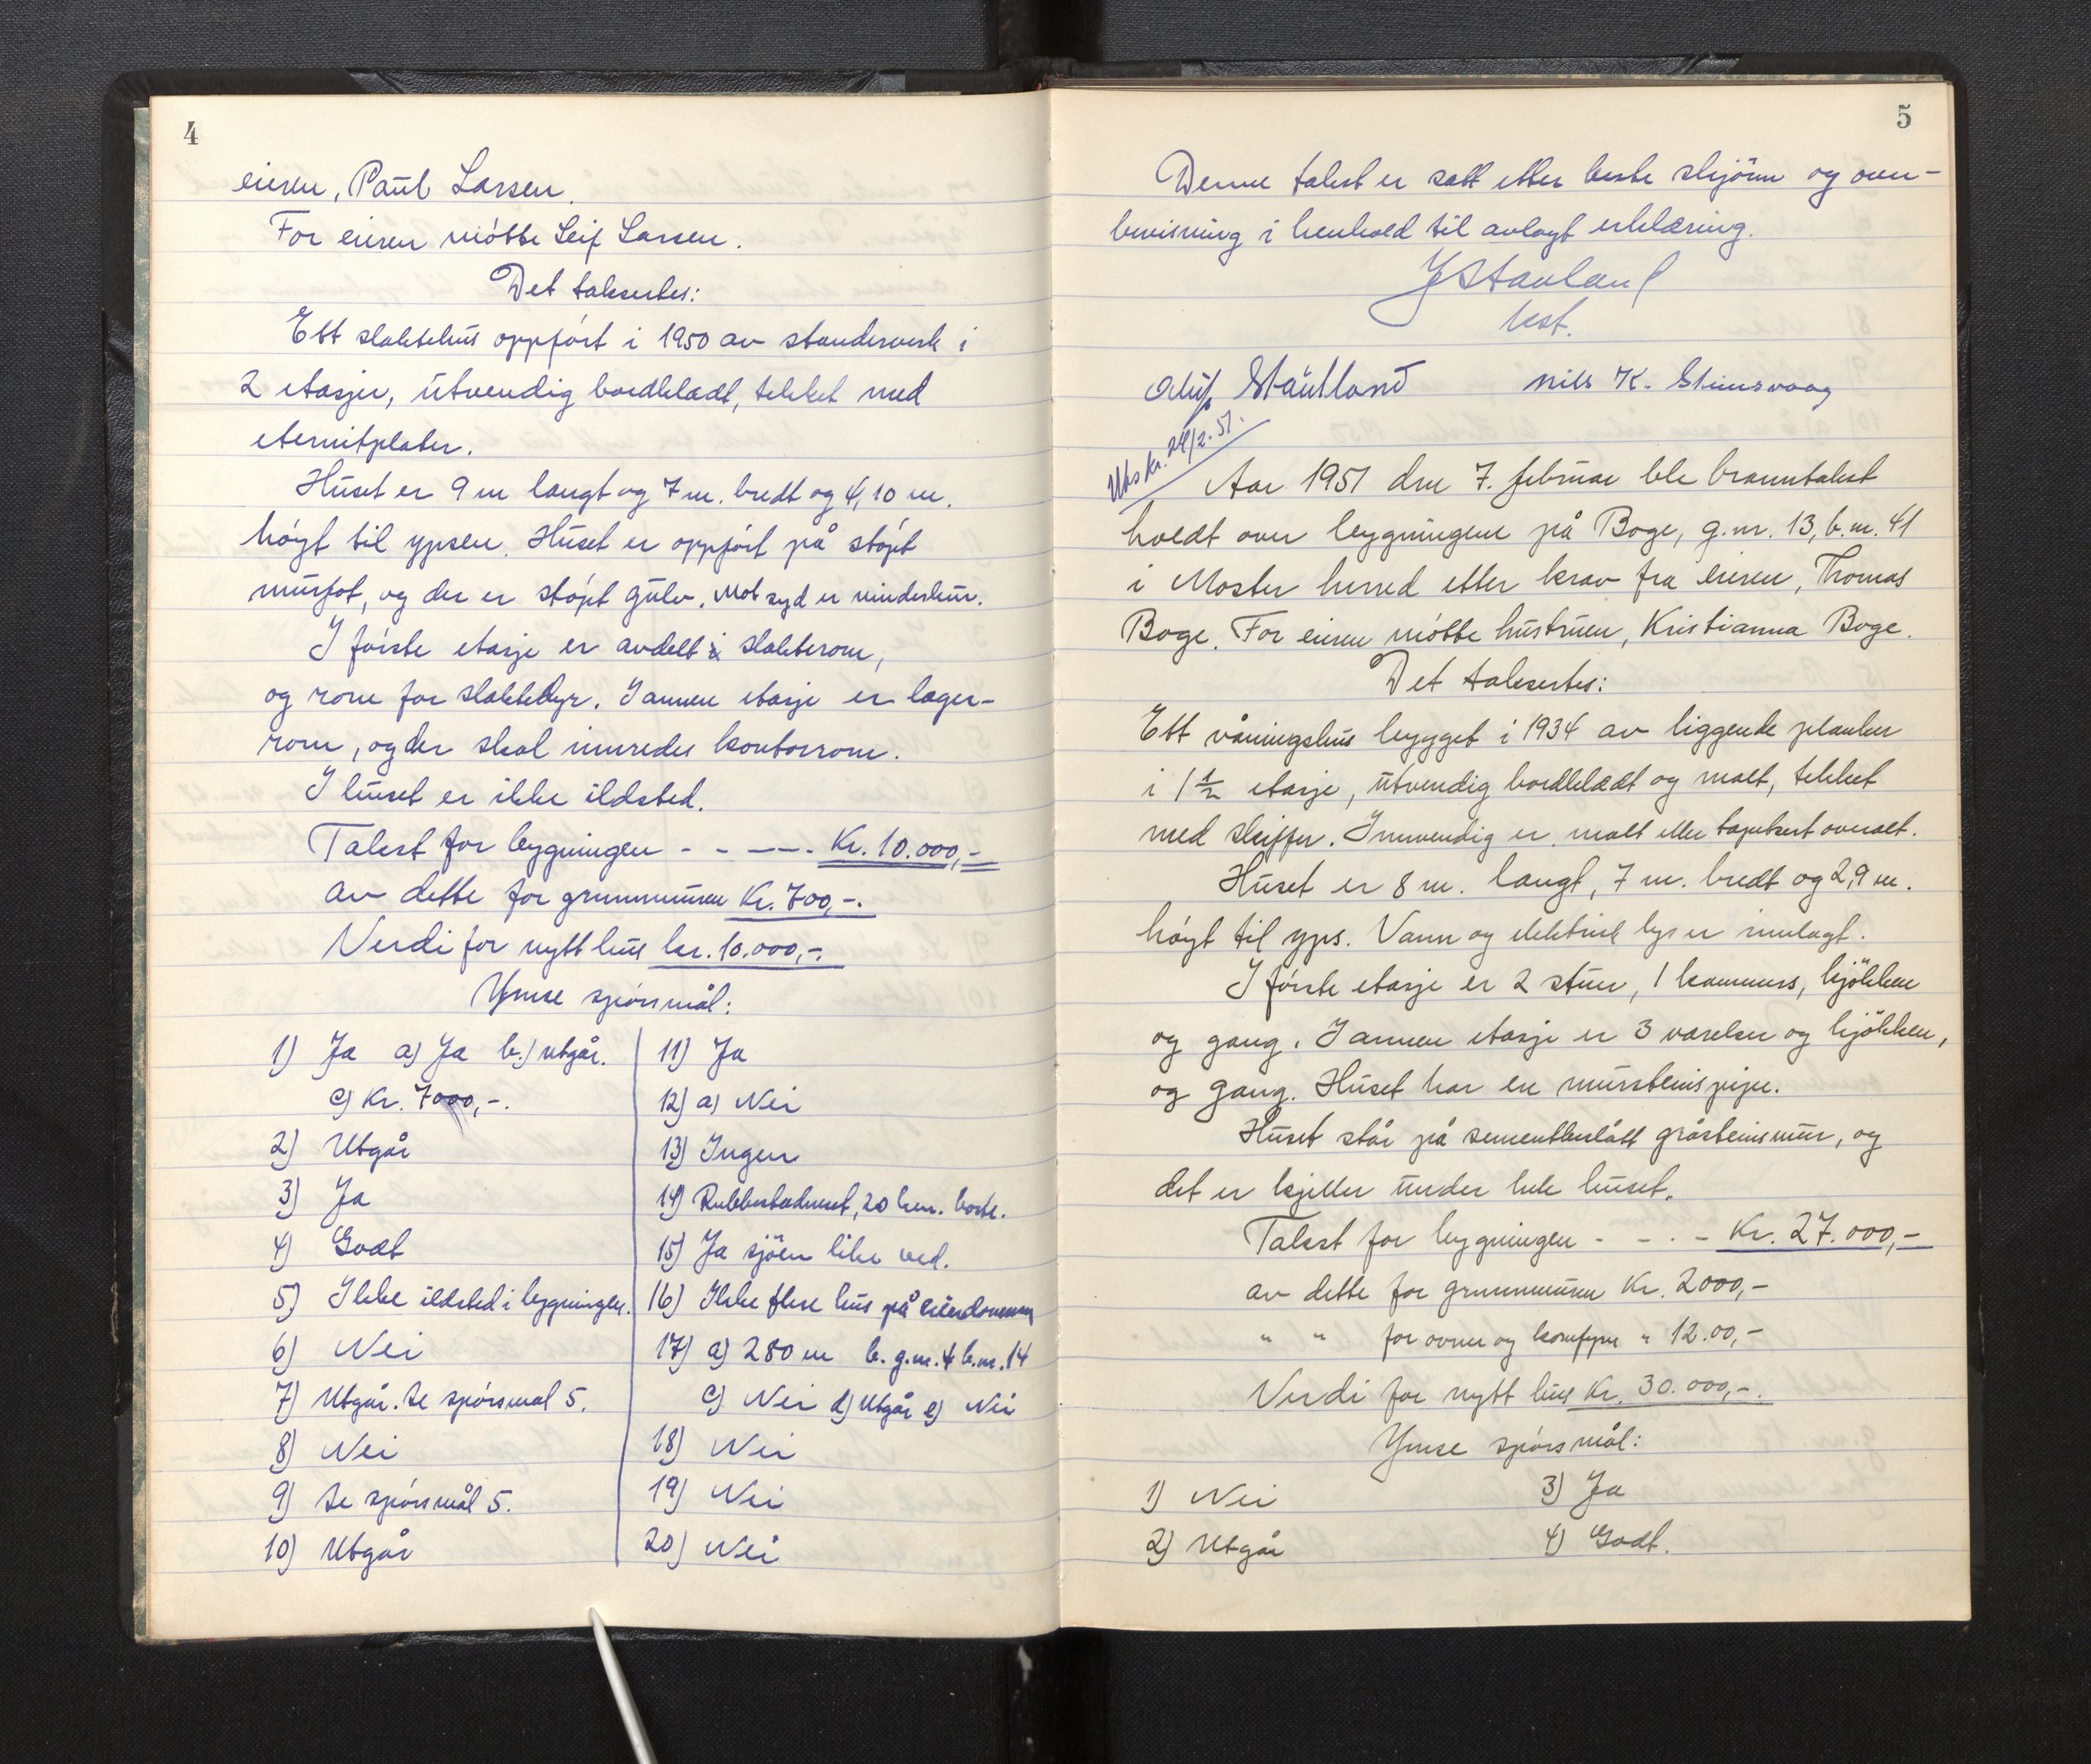 4
eieren, Paul Larsen.
For eieren møtte Leif Larsen.
Det taksertes:
Ett slaktehus oppført i 1950 av standerverk i
2 etasjer, utvendig bordkledt, tekket med
eternitplater.
Huset er 9 m langt og 7 m. bredt og 4,10 m.
høyt til ypsen. Huset er oppført på støpt
murfot, og der er støpt gulv. Mot syd er vinderskur.
I første etasje er avdelt i slakterom,
og rom for slaktedyr. I annen etasje er lager-
rom, og der skal innredes kontorrom.
I huset er ikke ildsted.
Takst for bygningen - - - - . Kr. 10.000,-
av dette for grunnmuren Kr. 700,-.
Verdi for nytt hus kr. 10.000,-.
Ymse spørsmål:
1) Ja a) Ja b.) utgår.
c) Kr. 7000,-.
2) Utgår
3) Ja
4) Godt
5) Ikke ildsted i bygningen.
6) Nei
7) Utgår. Se spørsmål 5.
8) Nei
9) Se spørsmål 5.
10) Utgår
11) Ja
12) a) Nei
13) Ingen
14) Rubbestadneset, 20 km. borte.
15) Ja sjøen like ved.
16) Ikke flere hus på eiendommen
17) a) 280 m b. g.nr. 4 b.nr. 14
c) Nei d) Utgår e) Nei
18) Nei
19) Nei
20) Nei
5
Denne takst er satt etter beste skjønn og over-
bevisning i henhold til avlagt erklæring.
J Stavland
lest.
Oluf Stautland Nils K. Steinsvaag
Utskr. 24/2.51.
Aar 1951 den 7. februar ble branntakst
holdt over bygningene på Boge, g.nr. 13, b.nr. 41
i Moster herred etter krav fra eieren, Thomas
Boge. For eieren møtte hustruen, Kristianna Boge.
Det taksertes:
Ett våningshus bygget i 1934 av liggende planker
i 1 1/2 etasje, utvendig bordkledt og malt, tekket
med skiffer. Innvendig er malt eller tapetsert overalt.
Huset er 8 m. langt, 7 m. bredt og 2,9 m.
høyt til yps. Vann og elektrisk lys er innlagt.
I første etasje er 2 stuer, 1 kammers, kjøkken
og gang. I annen etasje er 3 værelser og kjøkken,
og gang. Huset har en murstenspipe.
Huset står på sementbeslått gråsteinsmur, og
det er kjeller under hele huset.
Takst for bygningen - - . - Kr. 27.000,-
av dette for grunnmuren Kr. 2000,-
" " for ovner og komfyrer " 12.00,-
Verdi for nytt hus Kr. 30.000,-.
Ymse spørsmål:
1) Nei
2) Utgår
3) Ja
4) Godt.